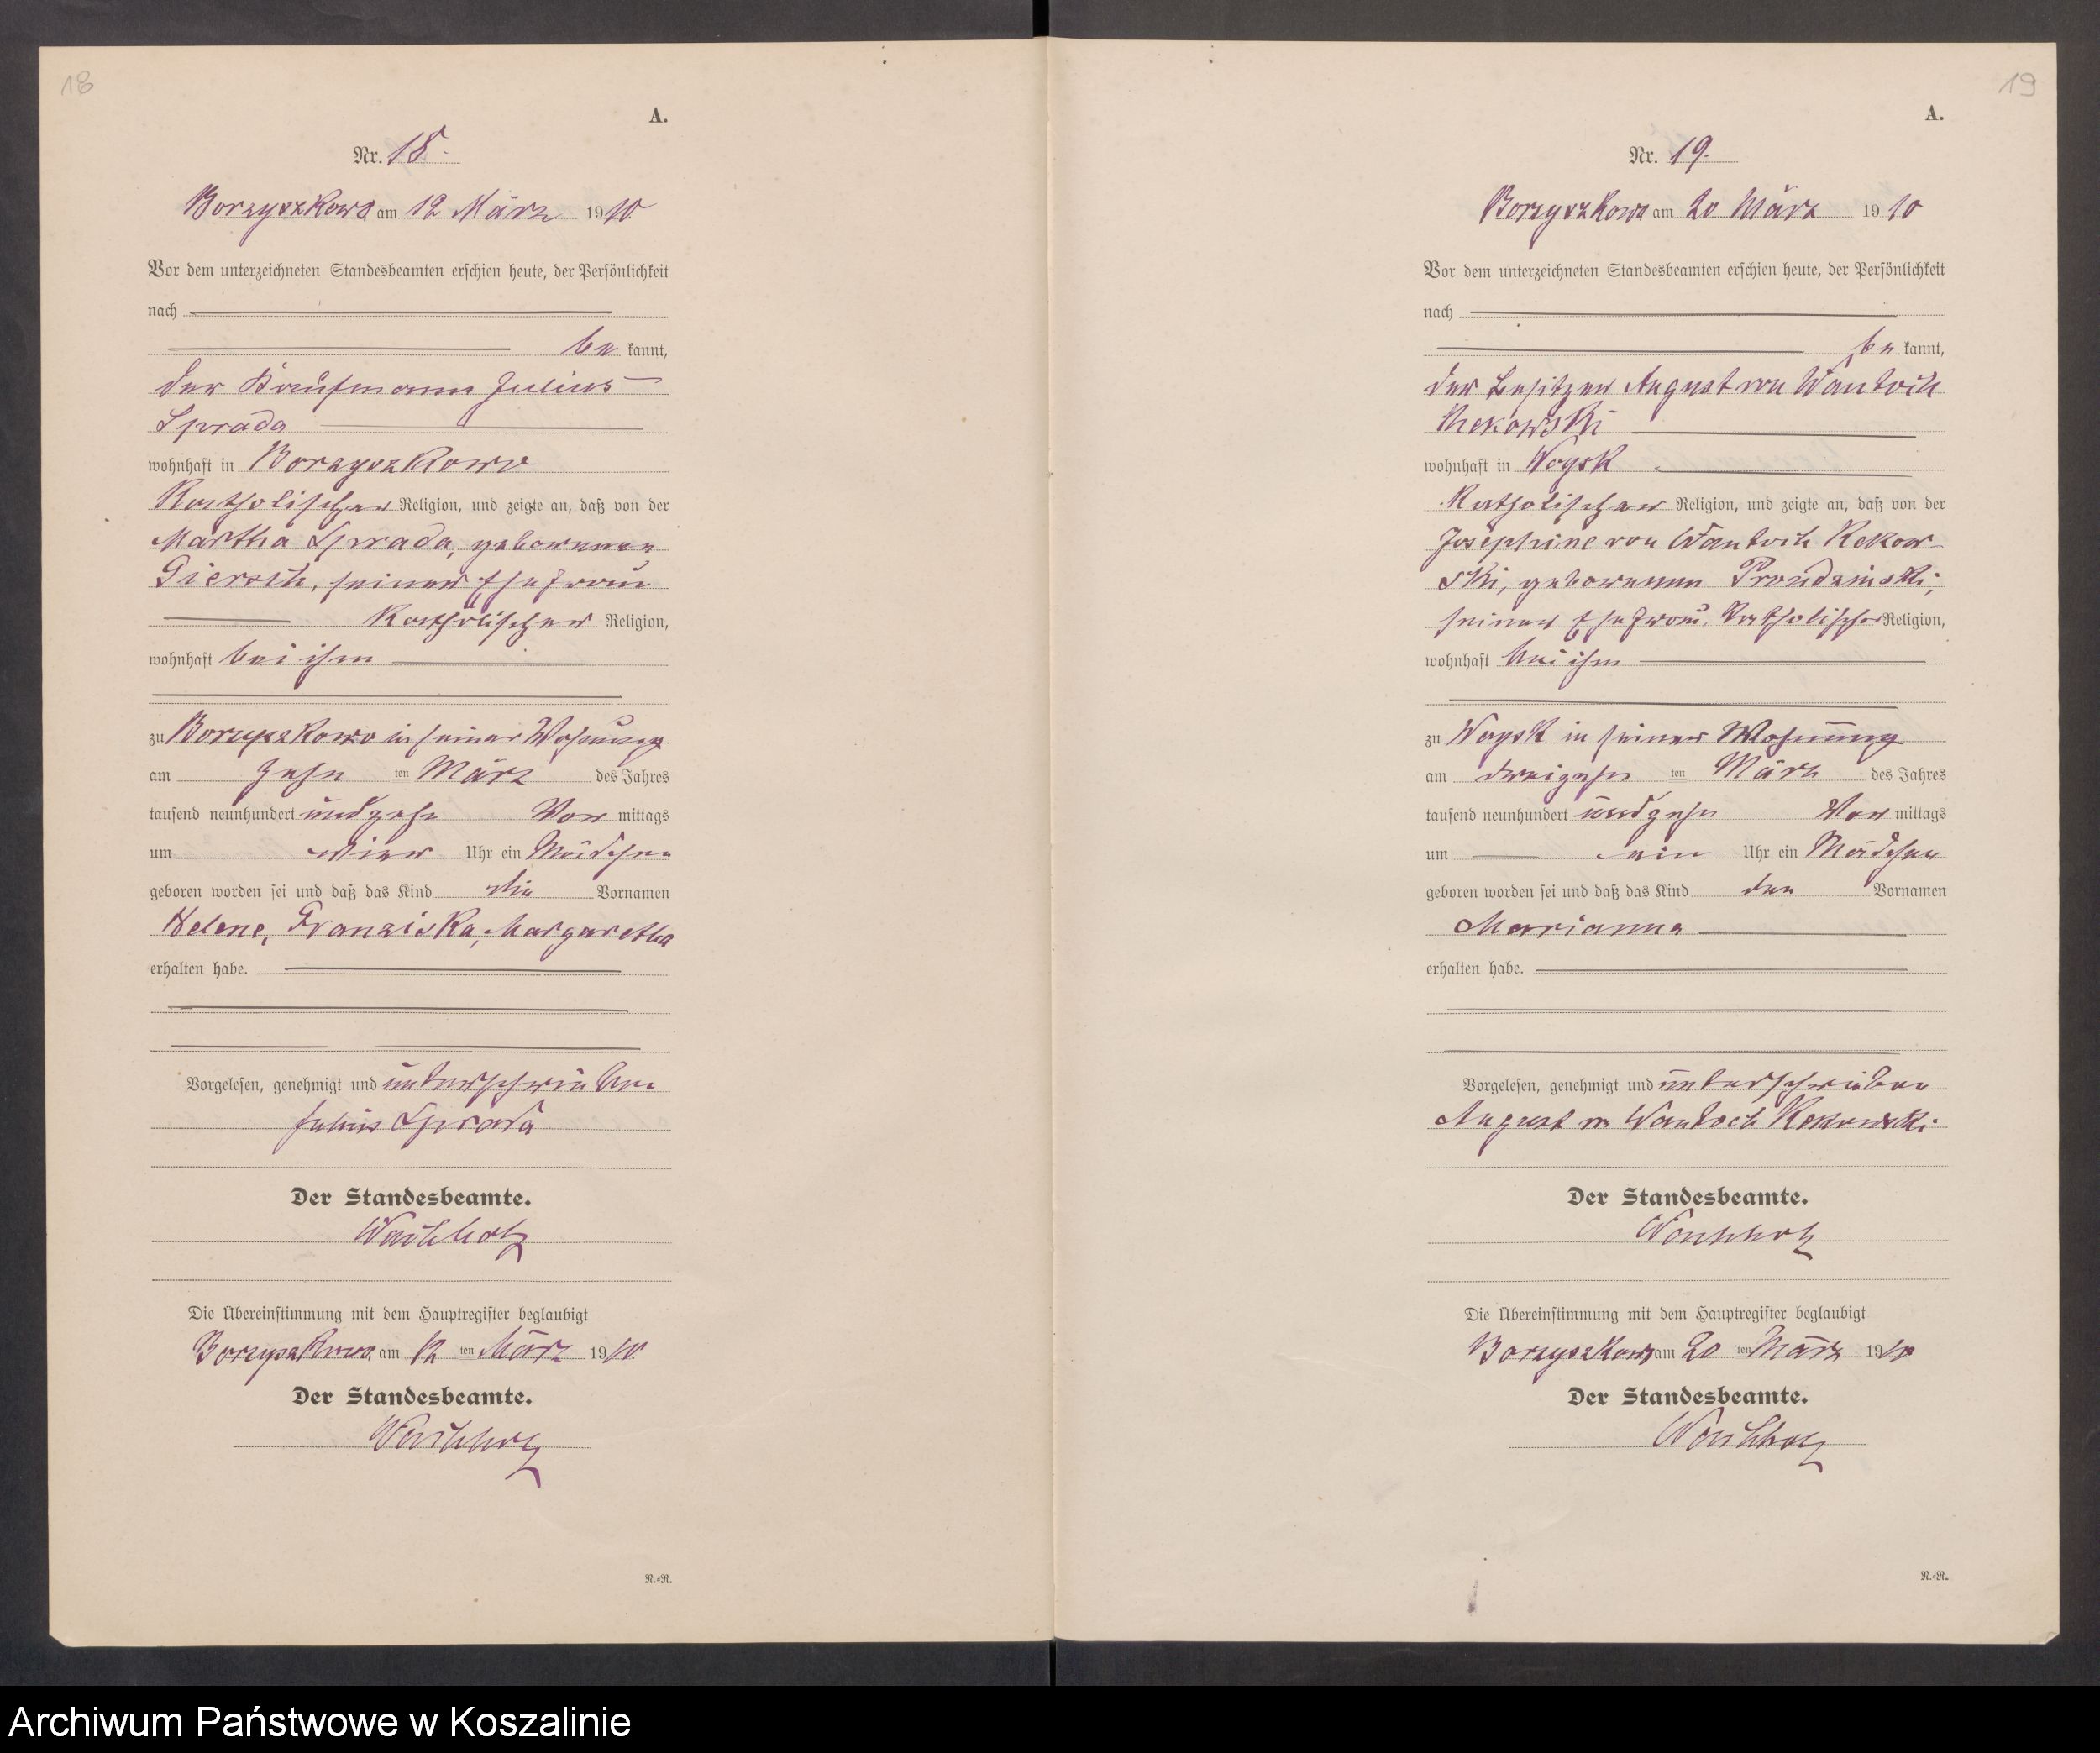 18
A.
Nr. 18.
Borzyszkowo am 12 März 1910.
Vor dem unterzeichneten Standesbeamten erschien heute, der Persönlichkeit
nach
be kannt,
der Kaufmann Julius
Sprada
wohnhaft in Borzyszkowo
Katholischer Religion, und zeigte an, daß von der
Martha Sprada, geborenen
Giersch, seiner Ehefrau
Katholischer Religion,
wohnhaft bei ihm
zu Borzyszkowo in seiner Wohnung
am zehn ten März des Jahres
tausend neunhundert und zehn Vor mittags
um vier Uhr ein Mädchen
geboren worden sei und daß das Kind die Vornamen
Helene, Franziska, Margaretha
erhalten habe.
Vorgelesen, genehmigt und unterschrieben
Julius Sprada
Der Standesbeamte.
Wachholz
Die Übereinstimmung mit dem Hauptregister beglaubigt
Borzyszkowo, am 12 ten März 1910.
Der Standesbeamte.
Wachholz
N.=R.
19
A.
Nr. 19.
Borzyszkowo am 20 März 1910
Vor dem unterzeichneten Standesbeamten erschien heute, der Persönlichkeit
nach
be kannt,
der Besitzer August von Wantoch
Rekowski
wohnhaft in Woysk
Katholischer Religion, und zeigte an, daß von der
Josephine von Wantoch Rekow-
ski, geborenen Prondzinski,
seiner Ehefrau, Katholischer Religion,
wohnhaft bei ihm
zu Woysk in seiner Wohnung
am dreizehn ten März des Jahres
tausend neunhundert und zehn Vor mittags
um ein Uhr ein Mädchen
geboren worden sei und daß das Kind den Vornamen
Marianna
erhalten habe.
Vorgelesen, genehmigt und unterschrieben
August v Wantoch Rekowski
Der Standesbeamte.
Wachholz
Die Übereinstimmung mit dem Hauptregister beglaubigt
Borzyszkowo am 20 ten März 1910
Der Standesbeamte.
Wachholz
N.=R.
Archiwum Państwowe w Koszalinie